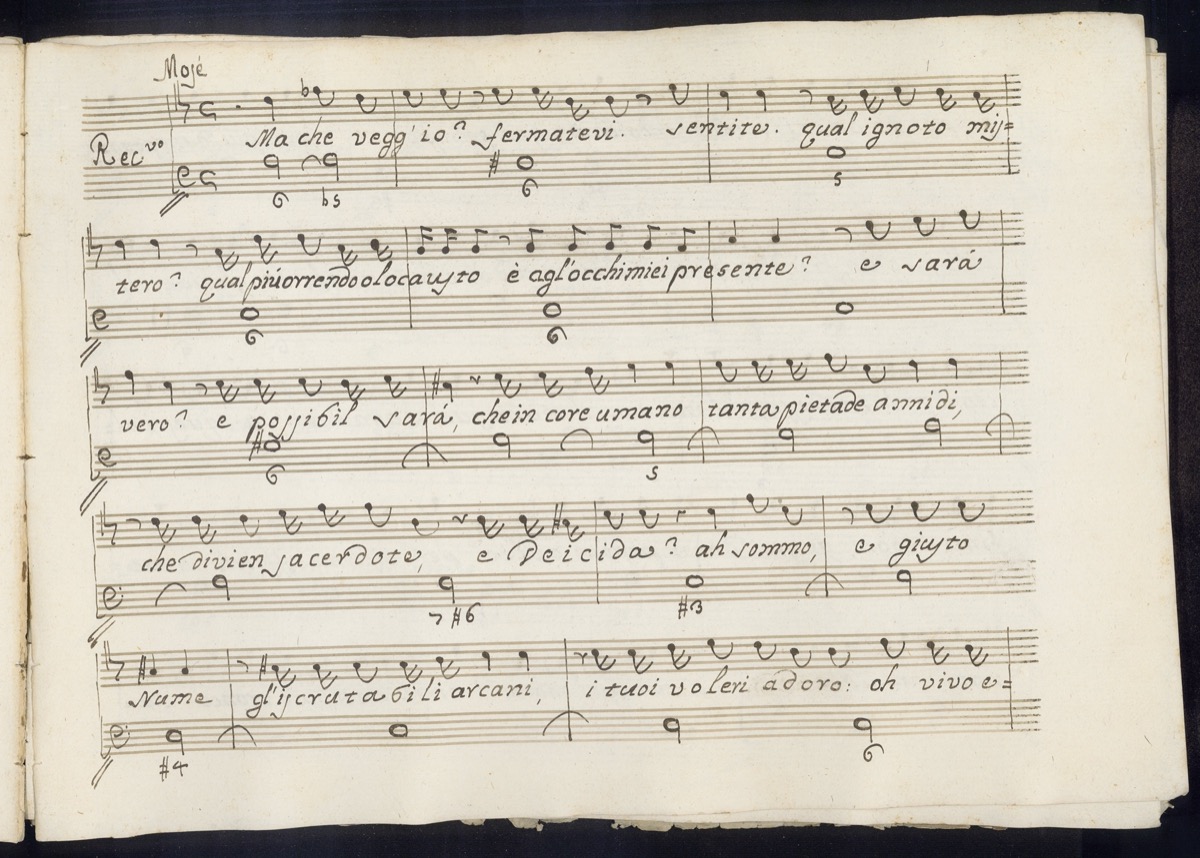 Mosé
Ma che vegg'io? fermatevi. sentite. qual ignoto mis=
Rec.vo
6 b5 6 5
tero? qual piú orrendo olocausto è agl'occhi miei presente? e sará
6 6
vero? e possibil sará, che in core umano tanta pietade annidi,
6 5
che divien sacerdote, e Deicida? ah sommo, e giusto
7 #6 #3
Nume gl'iscrutabili arcani, i tuoi voleri adoro: oh vivo e=
#4 6